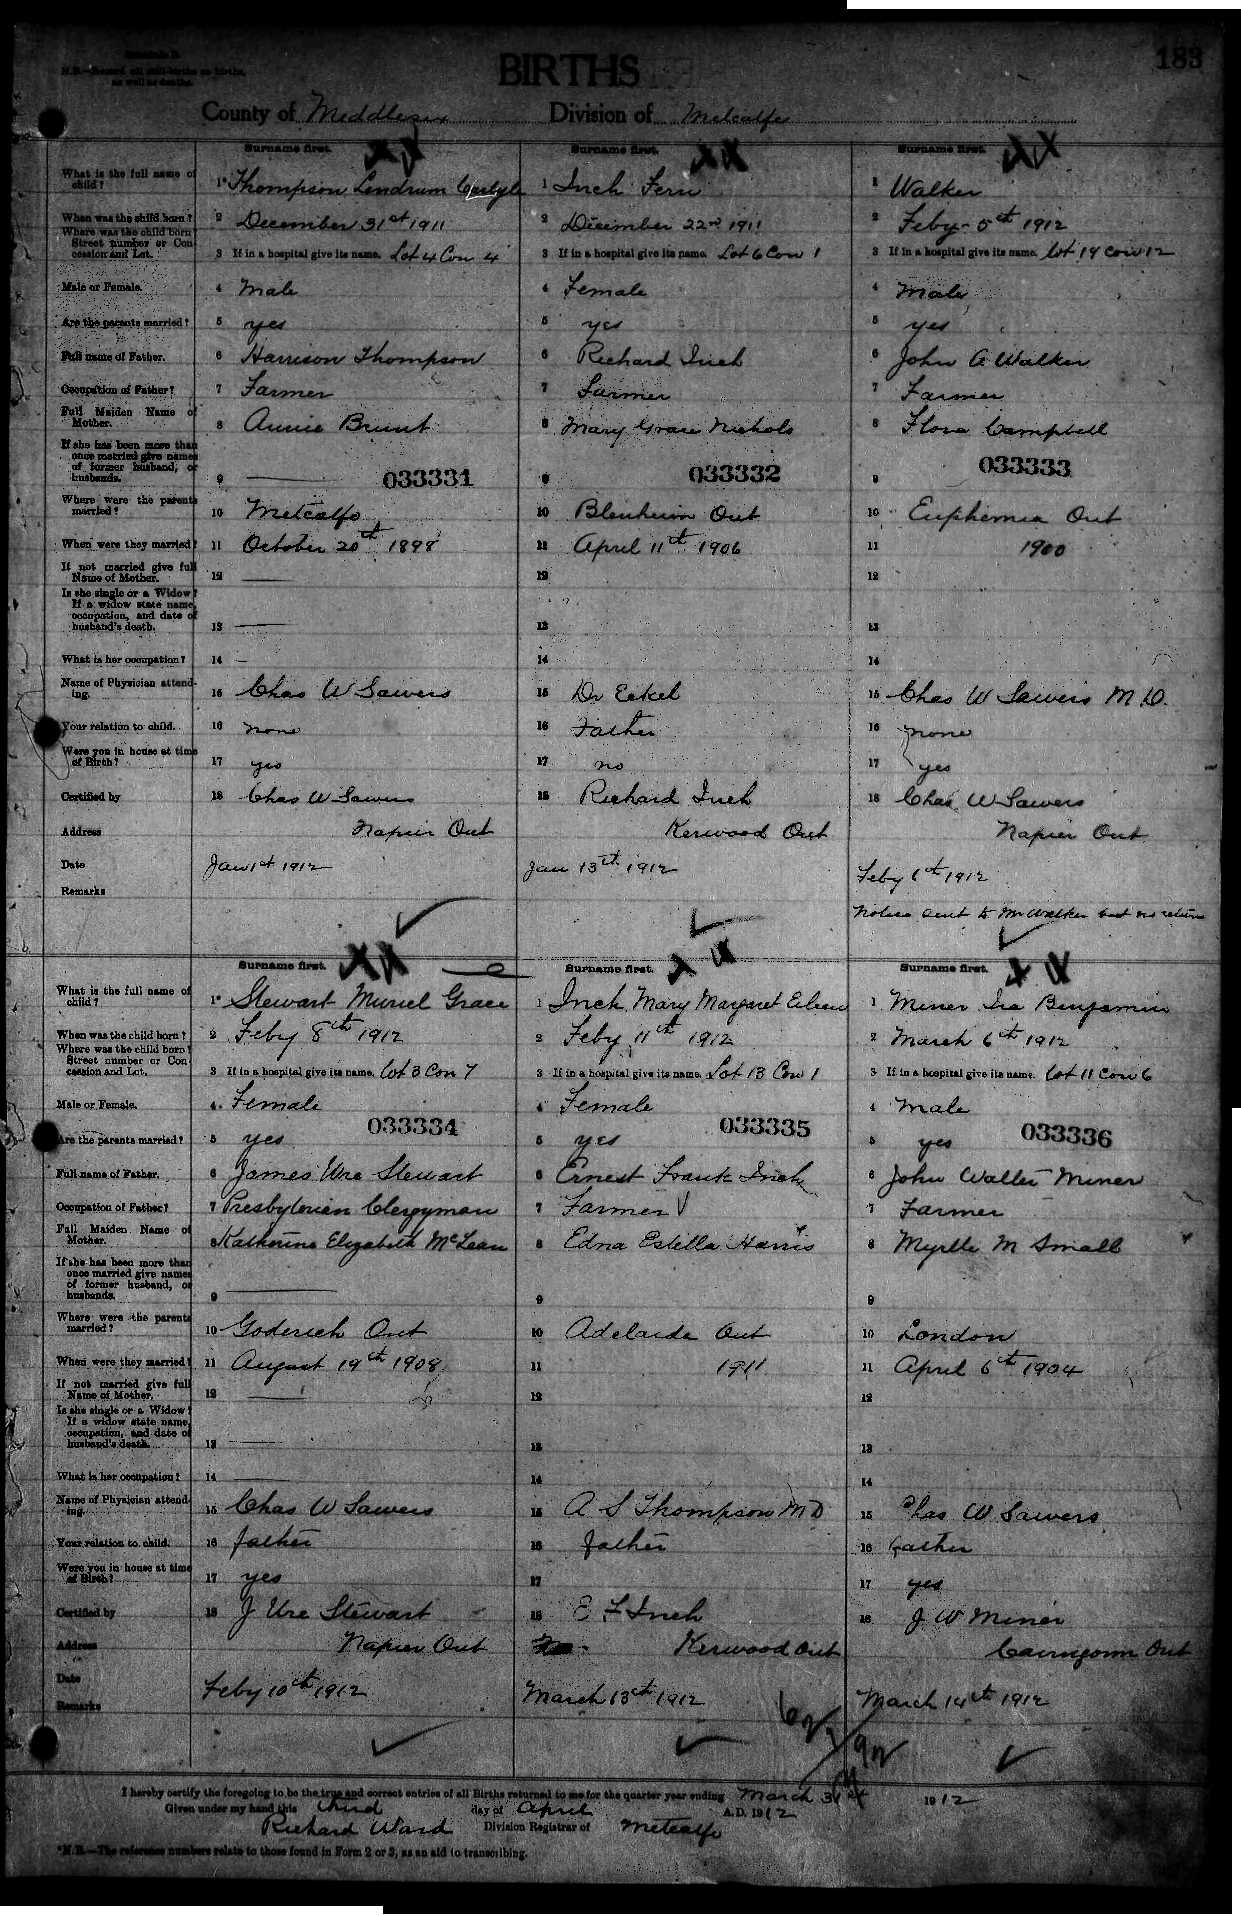 Schedule B.
N.B.—Record all still-births as births,
as well as deaths.
BIRTHS
183
County of Middlesex Division of Metcalfe
Surname first. Surname first. Surname first.
What is the full name of child? 1* Thompson Lendrum Carlyle 1 Inch Fern 1 Walker
When was the child born? 2 December 31st 1911 2 December 22nd 1911 2 Feby 5th 1912
Where was the child born? Street number or Concession and Lot. 3 If in a hospital give its name. Lot 4 Con 4 3 If in a hospital give its name. Lot 6 Con 1 3 If in a hospital give its name. Lot 19 Con 12
Male or Female. 4 Male 4 Female 4 Male
Are the parents married? 5 yes 5 yes 5 yes
Full name of Father. 6 Harrison Thompson 6 Richard Inch 6 John A Walker
Occupation of Father? 7 Farmer 7 Farmer 7 Farmer
Full Maiden Name of Mother. 8 Annie Brunt 8 Mary Grace Nichols 8 Flora Campbell
If she has been more than once married give names of former husband, or husbands. 9 033331 9 033332 9 033333
Where were the parents married? 10 Metcalfe 10 Blenheim Ont 10 Euphemia Ont
When were they married? 11 October 20th 1898 11 April 11th 1906 11 1900
If not married give full Name of Mother. 12 12 12
Is she single or a Widow? If a widow state name, occupation, and date of husband's death. 13 13 13
What is her occupation? 14 14 14
Name of Physician attending. 15 Chas W Sawers 15 Dr Eakel 15 Chas W Sawers M.D.
Your relation to child. 16 none 16 Father 16 none
Were you in house at time of Birth? 17 yes 17 no 17 yes
Certified by 18 Chas W Sawers 18 Richard Inch 18 Chas W Sawers
Address Napier Ont Kerwood Ont Napier Ont
Date Jan 1st 1912 Jan 13th 1912 Feby 6th 1912
Remarks Notice sent to Mr Walker but no return
Surname first. Surname first. Surname first.
What is the full name of child? 1* Stewart Muriel Grace 1 Inch Mary Margaret Eileen 1 Miner Ira Benjamin
When was the child born? 2 Feby 8th 1912 2 Feby 11th 1912 2 March 6th 1912
Where was the child born? Street number or Concession and Lot. 3 If in a hospital give its name. Lot 3 Con 7 3 If in a hospital give its name. Lot 13 Con 1 3 If in a hospital give its name. Lot 11 Con 6
Male or Female. 4 Female 4 Female 4 Male
033334 033335 033336
Are the parents married? 5 yes 5 yes 5 yes
Full name of Father. 6 James Ure Stewart 6 Ernest Frank Inch 6 John Walter Miner
Occupation of Father? 7 Presbyterian Clergyman 7 Farmer 7 Farmer
Full Maiden Name of Mother. 8 Katherine Elizabeth McLean 8 Edna Estella Harris 8 Myrtle M Small
If she has been more than once married give names of former husband, or husbands. 9 9 9
Where were the parents married? 10 Goderich Ont 10 Adelaide Ont 10 London
When were they married? 11 August 19th 1908 11 1911 11 April 6th 1904
If not married give full Name of Mother. 12 12 12
Is she single or a Widow? If a widow state name, occupation, and date of husband's death. 13 13 13
What is her occupation? 14 14 14
Name of Physician attending. 15 Chas W Sawers 15 A S Thompson M D 15 Chas W Sawers
Your relation to child. 16 father 16 father 16 father
Were you in house at time of Birth? 17 yes 17 17 yes
Certified by 18 J Ure Stewart 18 E F Inch 18 J W Miner
Address Napier Ont Kerwood Ont Cairngorm Ont
Date Feby 10th 1912 March 13th 1912 March 14th 1912
Remarks
I hereby certify the foregoing to be the true and correct entries of all Births returned to me for the quarter year ending March 31st 1912
Given under my hand this third day of April A.D. 1912
Richard Ward Division Registrar of Metcalfe
*N.B.—The reference numbers relate to those found in Form 2 or 3, as an aid to transcribing.